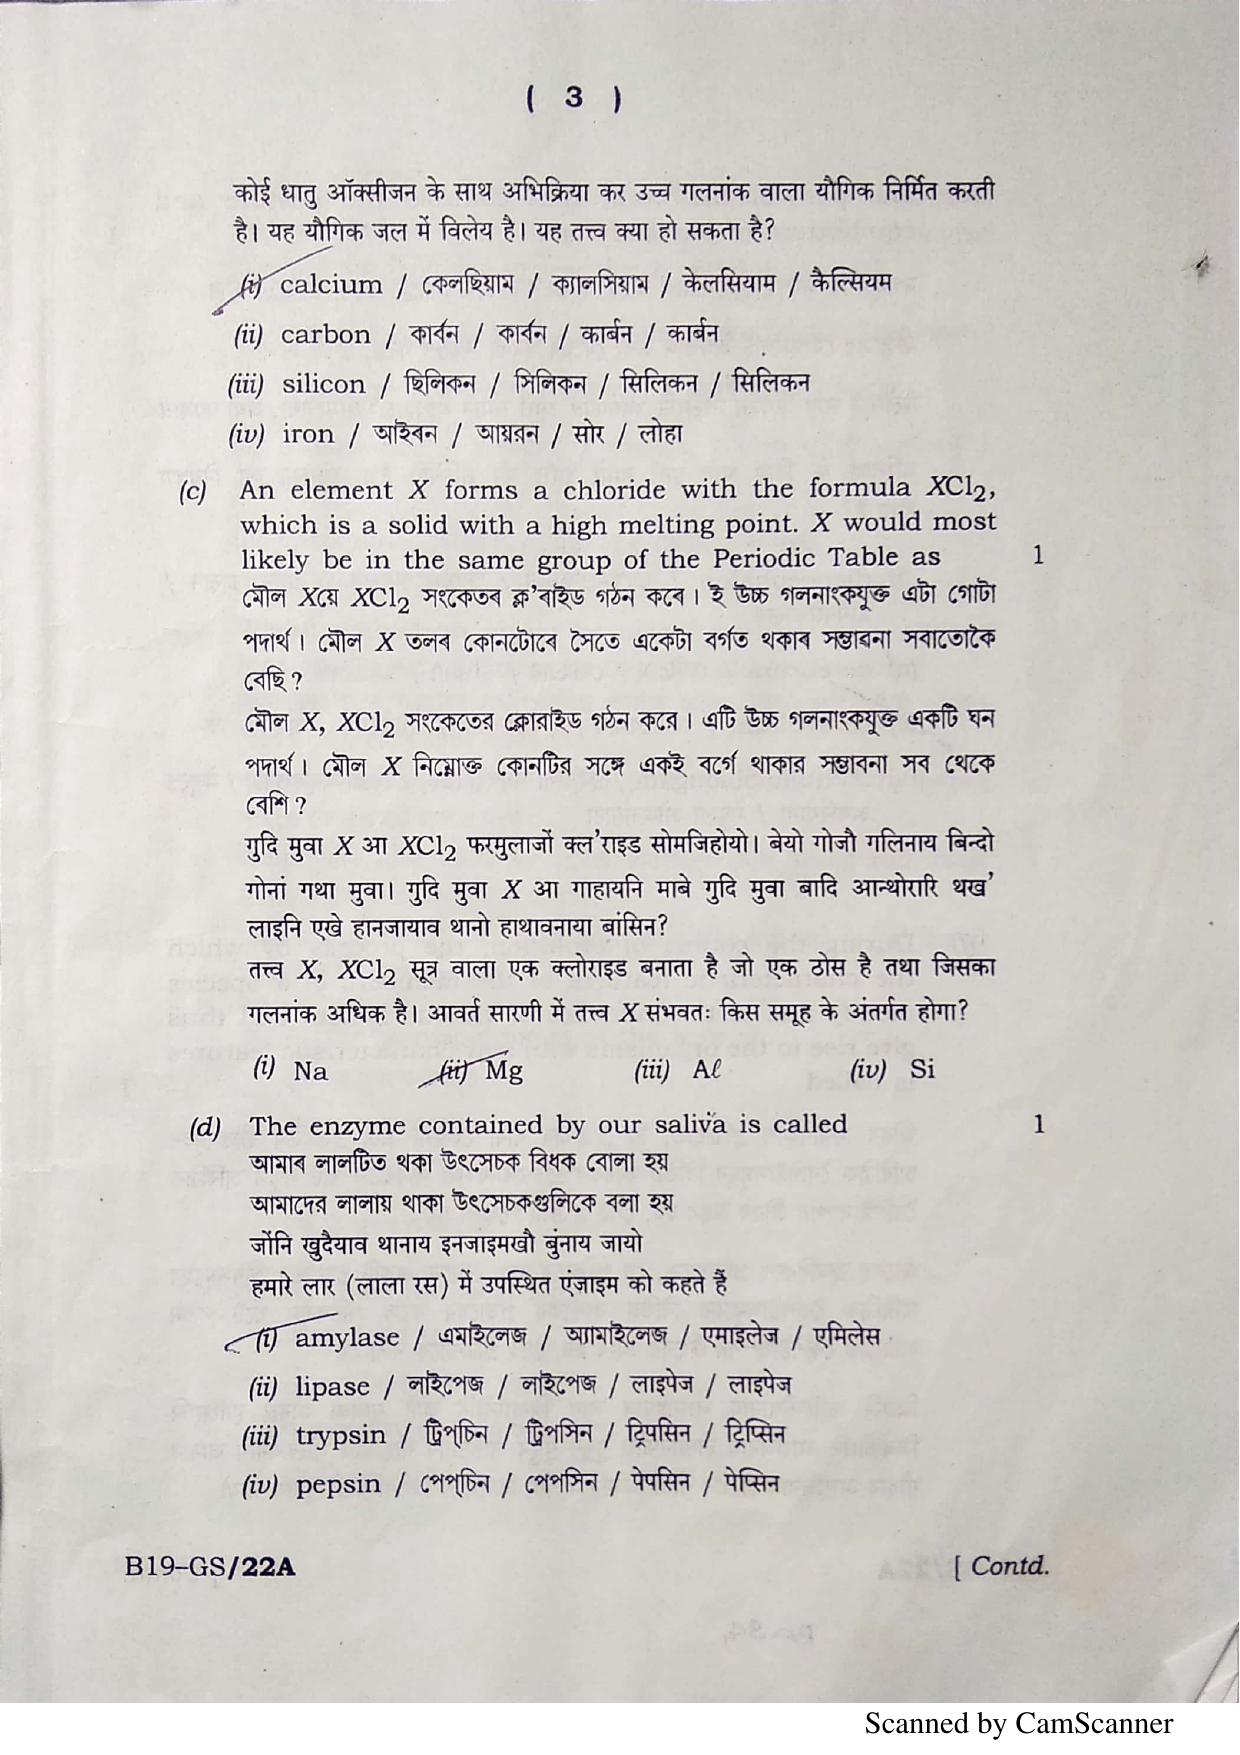 ( 3 )
कोई धातु ऑक्सीजन के साथ अभिक्रिया कर उच्च गलनांक वाला यौगिक निर्मित करती
है। यह यौगिक जल में विलेय है। यह तत्त्व क्या हो सकता है?
(i) calcium / কেলছিয়াম / ক্যালসিয়াম / केलसियाम / कैल्सियम
(ii) carbon / কাৰ্বন / কার্বন / कार्बन / कार्बन
(iii) silicon / ছিলিকন / সিলিকন / सिलिकन / सिलिकन
(iv) iron / আইৰন / আয়রন / सोर / लोहा
(c) An element X forms a chloride with the formula XCl₂,
which is a solid with a high melting point. X would most
likely be in the same group of the Periodic Table as 1
মৌল Xয়ে XCl₂ সংকেতৰ ক্ল'ৰাইড গঠন কৰে। ই উচ্চ গলনাংকযুক্ত এটা গোটা
পদাৰ্থ। মৌল X তলৰ কোনটোৰে সৈতে একেটা বৰ্গত থকাৰ সম্ভাৱনা সবাতোতকৈ
বেছি?
মৌল X, XCl₂ সংকেতের ক্লোরাইড গঠন করে। এটি উচ্চ গলনাংকযুক্ত একটি ঘন
পদার্থ। মৌল X নিম্নোক্ত কোনটির সঙ্গে একই বর্গে থাকার সম্ভাবনা সব থেকে
বেশি?
गुदि मुवा X आ XCl₂ फरमुलाजों क्ल'राइड सोमजिहोयो। बेयो गोजौ गलिनाय बिन्दो
गोनां गथा मुवा। गुदि मुवा X आ गाहायनि माबे गुदि मुवा बादि आन्थोरारि थख'
लाइनि एखे हानजायाव थानो हाथावनाया बांसिन?
तत्त्व X, XCl₂ सूत्र वाला एक क्लोराइड बनाता है जो एक ठोस है तथा जिसका
गलनांक अधिक है। आवर्त सारणी में तत्त्व X संभवतः किस समूह के अंतर्गत होगा?
(i) Na (ii) Mg (iii) Aℓ (iv) Si
(d) The enzyme contained by our saliva is called 1
আমাৰ লালটিত থকা উৎসেচক বিধক বোলা হয়
আমাদের লালায় থাকা উৎসেচকগুলিকে বলা হয়
जोंनि खुदैयाव थानाय इनजाइमखौ बुंनाय जायो
हमारे लार (लाला रस) में उपस्थित एंजाइम को कहते हैं
(i) amylase / এমাইলেজ / অ্যামাইলেজ / एमाइलेज / एमिलेस
(ii) lipase / লাইপেজ / লাইপেজ / लाइपेज / लाइपेज
(iii) trypsin / ট্ৰিপ্‌চিন / ট্রিপসিন / ट्रिपसिन / ट्रिप्सिन
(iv) pepsin / পেপ্‌চিন / পেপসিন / पेपसिन / पेप्सिन
B19–GS/22A [ Contd.
Scanned by CamScanner